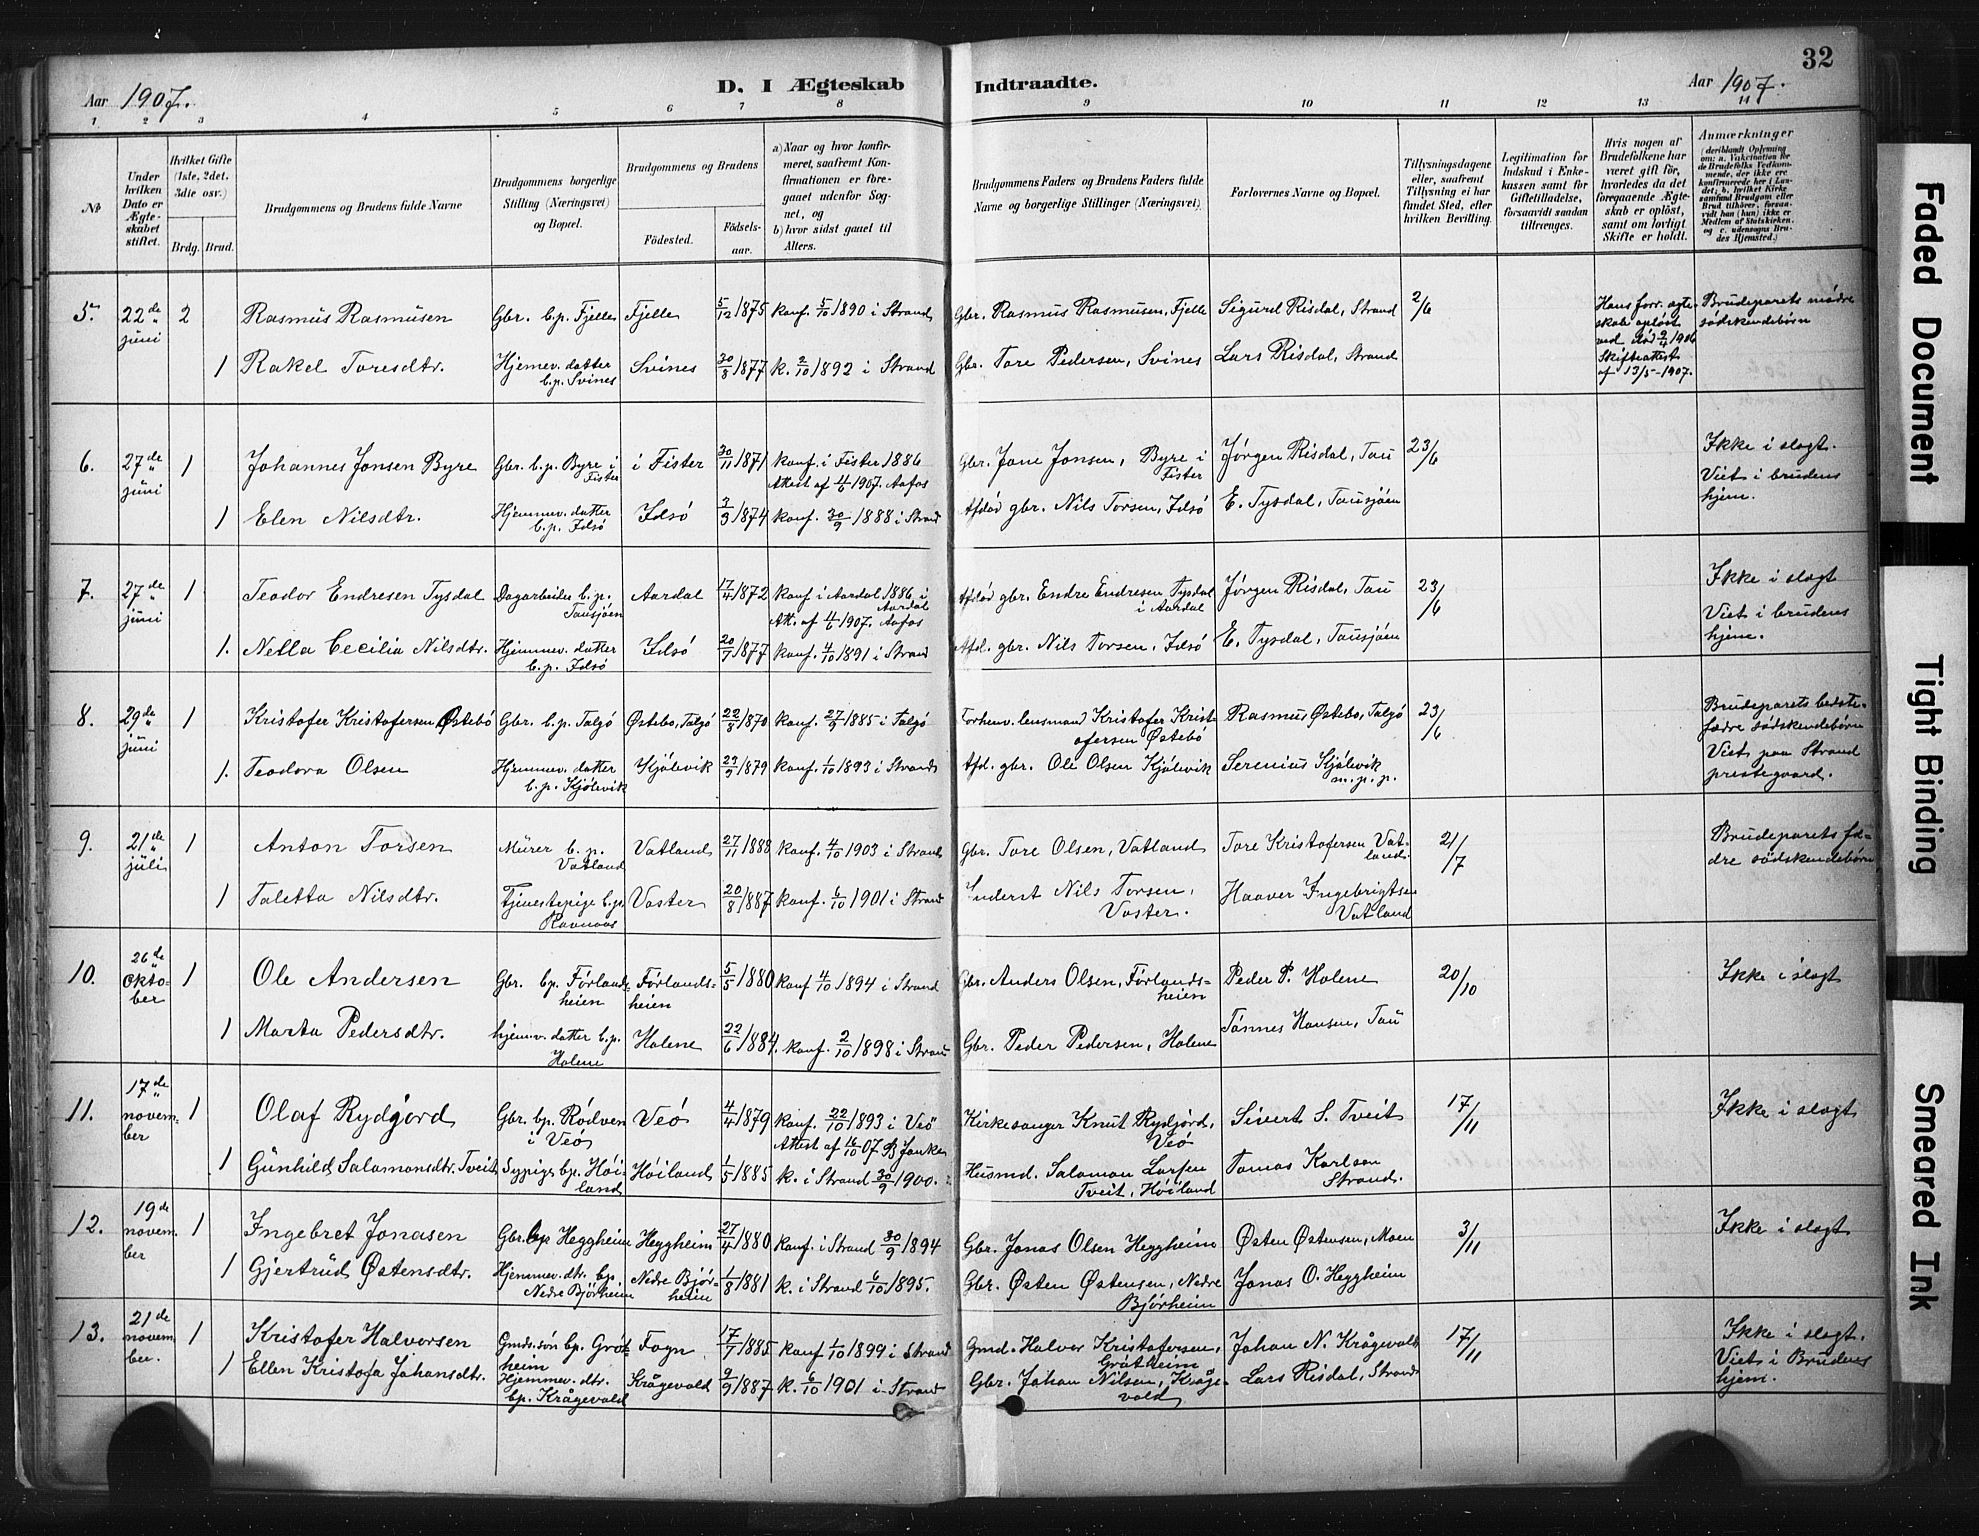 32
Aar 1907.
D. I Ægteskab Indtraadte.
Aar 1907.
1 2 3 4 5 6 7 8 9 10 11 12 13 14
No
Under hvilken Dato er Ægteskabet stiftet.
Hvilket Gifte (1ste, 2det, 3die osv.)
Brdg. Brud.
Brudgommens og Brudens fulde Navne
Brudgommens borgerlige Stilling (Næringsvei) og Bopæl.
Brudgommens og Brudens
Fødested.
Fødselsaar.
a) Naar og hvor konfirmeret, saafremt Konfirmationen er foregaaet udenfor Sognet, og
b) hvor sidst gaaet til Alters.
Brudgommens Faders og Brudens Faders fulde Navne og borgerlige Stillinger (Næringsvei).
Forlovernes Navne og Bopæl.
Tillysningsdagene eller, saafremt Tillysning ei har fundet Sted, efter hvilken Bevilling.
Legitimation for Indskud i Enkekassen samt for Giftetilladelse, forsaavidt saadan tiltrænges.
Hvis nogen af Brudefolkene har været gift før, hvorledes da det foregaaende Ægteskab er opløst, samt om lovligt Skifte er holdt.
Anmærkninger
(deriblandt Oplysning om: a. Vakcination for de Brudefolks Vedkommende, der ikke ere konfirmerede her i Landet; b. hvilket Kirkesamfund Brudgom eller Brud tilhører, forsaavidt han (hun) ikke er Medlem af Statskirken, og c. udensogns Brudes Hjemsted.)
5. 22de juni 2 Rasmus Rasmusen Gbr. b.p. Fjelle Fjelle 5/12 1875 konf. 5/10 1890 i Strand Gbr. Rasmus Rasmusen, Fjelle Sigurd Risdal, Strand 2/6 Hans forr. ægteskab opløst ved død 9/4 1906 Skifteattest af 13/5-1907. Brudeparets mødre sødskendebørn
1 Rakel Toresdtr. Hjemev. datter b.p. Svines Svines 30/8 1877 k. 2/10 1892 i Strand Gbr. Tore Pedersen, Svines Lars Risdal, Strand
6. 27de juni 1 Johannes Jonsen Byre Gbr. b.p. Byre i Fister i Fister 30/11 1871 konf. i Fister 1886 Attest af 4/6 1907. Aafos Gbr. Jone Jonsen, Byre i Fister Jørgen Risdal, Tau 23/6 Ikke i slegt. Viet i brudens hjem.
1 Elen Nilsdtr. Hjemmev. datter b.p. Idsø Idsø 3/9 1874 konf. 30/9 1888 i Strand Afdød gbr. Nils Torsen, Idsø E. Tysdal, Tausjøen
7. 27de juni 1 Teodor Endresen Tysdal Dagarbeider b.p. Tausjøen Aardal 17/4 1872 konf. i Aardal 1886 i Aardal Att. af 4/6 1907. Aafos Afdød gbr. Endre Endresen Tysdal i Aardal Jørgen Risdal, Tau 23/6 Ikke i slegt Viet i brudens hjem.
1. Nella Cecilia Nilsdtr. Hjemmev. datter b.p. Idsø Idsø 20/7 1877 konf. 4/10 1891 i Strand Afd. gbr. Nils Torsen, Idsø E. Tysdal, Tausjøen
8. 29de juni 1 Kristofer Kristofersen Østebö Gbr. b.p. Talgö Østebo, Talgö 22/8 1870 konf. 27/9 1885 i Talgö Forhenv. lensmand Kristofer Kristofersen Østebö Rasmus Østebo, Talgö 23/6 Brudeparets bedstefædre sødskendebørn Viet paa Strand prestegaard.
1. Teodora Olsen Hjemmev. datter b.p. Kjölevik Kjölevik 23/9 1879 konf. 1/10 1893 i Strand Afd. gbr. Ole Olsen Kjölevik Serenius Kjölevik m. p. p.
9. 21de juli 1 Anton Torsen Mürer b.p. Vatland Vatland 27/11 1888 konf. 4/10 1903 i Strand Gbr. Tore Olsen, Vatland Tore Kristofersen Vatland. 21/7 Brudeparets fædre sødskendebörn
1 Taletta Nilsdtr. Tjenestepige b.p. Ravnaas Voster 20/8 1887 konf. 6/10 1901 i Strand Inderst Nils Torsen, Voster. Haaver Ingebrigtsen Vatland
10. 26de Oktober 1 Ole Andersen Gbr. b.p. Förlandsheien Förlandsheien 5/5 1880 konf. 4/10 1894 i Strand Gbr. Anders Olsen, Förlandsheien Peder P. Holene 20/10 Ikke i slegt
1 Marta Pedersdtr. hjemv. datter b.p. Holene Holene 22/6 1884. konf. 2/10 1898 i Strand Gbr. Peder Pedersen, Holene Tönnes Hansen, Tau
11. 17de november 1 Olaf Rydgjord Gbr. bp. Rödven i Veö Veö 4/4 1879 konf. 22/10 1893 i Veö Attest af 16/10 07 Kirkesanger Knut Rydjord, Veö Sivert S. Tveit 17/11 Ikke i slegt
1 Günhild Salamonsdtr. Tveit Sypige bp. Höiland Höiland 1/5 1885 k. i Strand 30/9 1900. Husmd. Salamon Larsen Tveit, Höiland Tomas Karlsen Strand.
12. 19de november 1 Ingebret Jonasen Gbr. bp Heggheim Heggheim 27/4 1880 konf. i Strand 30/9 1894 Gbr. Jonas Olsen Heggheim Østen Østensen, Moen 3/11 Ikke i slegt
1 Gjertrüd Østensdtr. Hjemmev. dtr. bp. Nedre Bjørheim Nedre Bjørheim 1/8 1881 k. i Strand 6/10 1895. Gbr. Østen Østensen, Nedre Bjørheim Jonas O. Heggheim
13. 21de november. 1 Kristofer Halvorsen Gmds. sön bp. Grötheim Fogn 17/7 1885 konf 1/10 1899 i Strand Gmd. Halvor Kristofersen, Grötheim Johan N. Krågevold 17/11 Ikke i slegt. Viet i Brudens hjem.
1 Ellen Kristofa Johansdtr. Hjemmev. dtr. bp. Krågevold Krågevold 9/9 1887 k. 6/10 1901 i Strand Gbr. Johan Nilsen, Krågevold Lars Risdal, Strand
Faded Document
Tight Binding
Smeared Ink